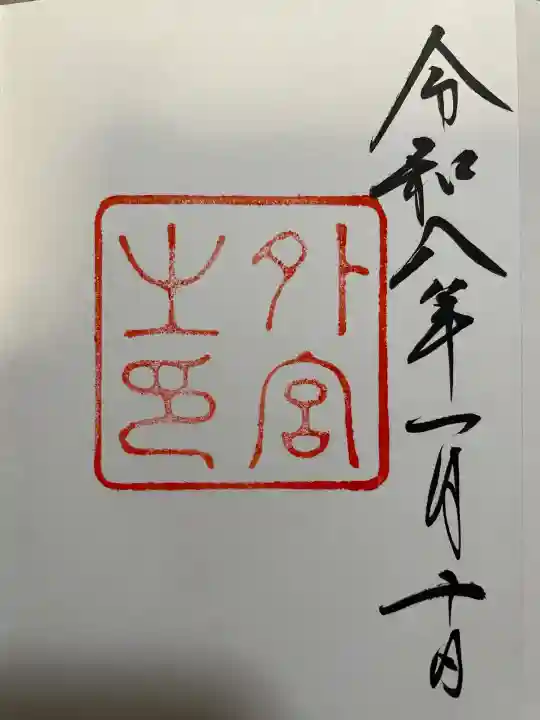 令和八年一月十日
外宮
之印